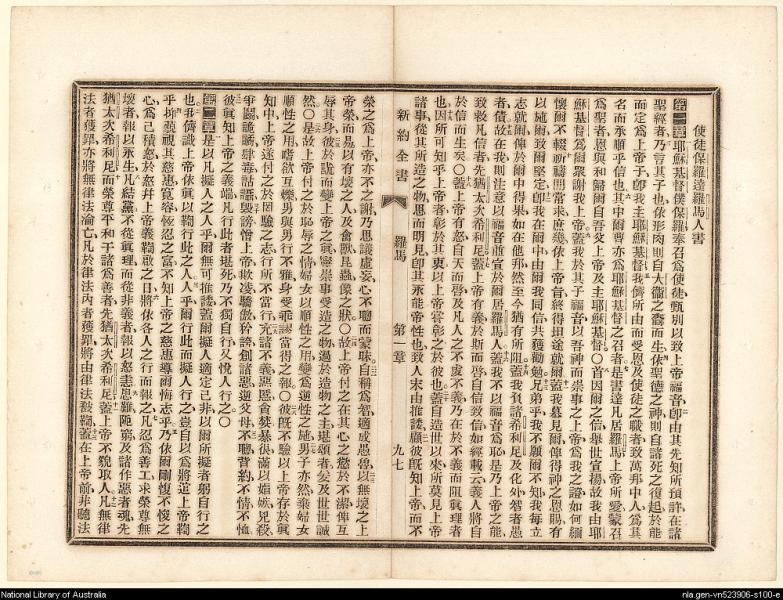 使徒保羅達羅馬人書
第一章耶穌基督僕保羅奉召爲使徒甄別以致上帝福音卽由其先知所預許在諸
聖經者乃言其子也依形肉則自大衞之裔而生依聖德之神則自諸死之復起於能
而定爲上帝子卽我主耶穌基督我儕所由而受恩及使徒之職者致萬邦中人爲其
名而承順乎信也其中爾曹亦爲耶穌基督之召者是書達凡居羅馬上帝所愛蒙召
爲聖者恩與和歸爾自吾父上帝及主耶穌基督〇首因爾之信舉世宣揚故我由耶
穌基督爲爾衆謝我上帝蓋我於其子福音以吾神而崇事之上帝爲我之證如何緬
懷爾不輟祈禱間常求庶幾依上帝旨終得坦途就爾蓋我慕見爾俾得神之恩賜有
以施爾致爾堅定卽我在爾中由爾我同信共獲勸勉兄弟乎我不願爾不知我每立
志就爾俾於爾中得果如在他邦然至今猶有所阻蓋我負諸希利尼及化外智者愚
者債故在我則注意以福音並宣於爾居羅馬人蓋我不以福音爲恥是乃上帝之能
致救凡信者先猶太次希利尼蓋上帝有義於斯而啓自信致信如經載云義人將自
於信而生矣〇蓋上帝有怒自天而啓及凡人之不虔不義乃在於不義而阻眞理者
也因所可知乎上帝者彰於其衷以上帝嘗彰之於彼也蓋自造世以來所莫見上帝
諸事從其所造之物思而明見卽其永能帝性也致人宋由推諉顧彼旣知上帝而不
新約全書 羅馬 第一章 九七
榮之爲上帝亦不之謝乃思議虛妄心不聰而蒙昧自稱爲智適成愚魯以無壞之上
帝榮而易以有壞之人及禽獸昆蟲像之狀〇故上帝付之在其心之慾於不潔俾互
辱其身彼於謊而變上帝之眞寧崇事受造之物過於造物之主堪頌者爰及世世誠
然〇是故上帝付之於恥辱之情婦女以順性之用變爲逆性之施男子亦然棄婦女
順性之用嗜欲互爍男與男行不雅身受乖謬當得之報〇彼旣不驗以上帝存於眞
知中上帝遂付之於罔驗之志行所不當行充諸不義惡慝貪婪暴很滿以媢嫉兇殺
爭鬩譎詭肆毒詁讟毀謗憎上帝欺凌驕傲矜誇創諸惡逆父母不聰背約不情不恤
彼眞知上帝之義端凡行此者堪死乃不獨自行又悅人行之〇
第二章是以凡擬人之人乎爾無可推諉蓋爾擬人適定己非以爾所擬者躬自行之
也我儕識上帝依眞以鞫行此之人人乎爾行此而擬人行之豈自以爲將逭上帝鞫
乎抑藐視其慈惠寬容恆忍之富不知上帝之慈惠導爾悔志乎乃依爾剛愎不悛之
心爲己積怒於怒幷上帝義鞫啟之日將依各人之行而報之凡忍爲善工求榮尊無
壞者報以永生凡結黨不從眞理而從非義者報以怒恚患難阨窮及諸作惡者魂先
猶太次希利尼而榮尊平和于諸爲善者先猶太次希利尼蓋上帝不貌取人凡無律
法者獲罪亦將無律法淪亡凡於律法內者獲罪將由律法致鞫蓋在上帝前非聽法
National Library of Australia
nla.gen-vn523906-s100-e